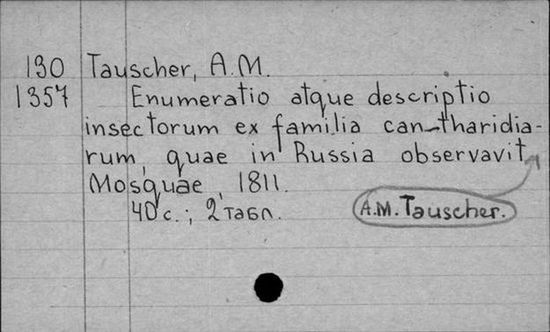 130 Tauscher, A.M.
1357 Enumeratio atque descriptio
insectorum ex familia can-tharidia-
rum, quae in Russia observavit
Mosquae, 1811.
40 с.; 2 табл.
A.M. Tauscher.